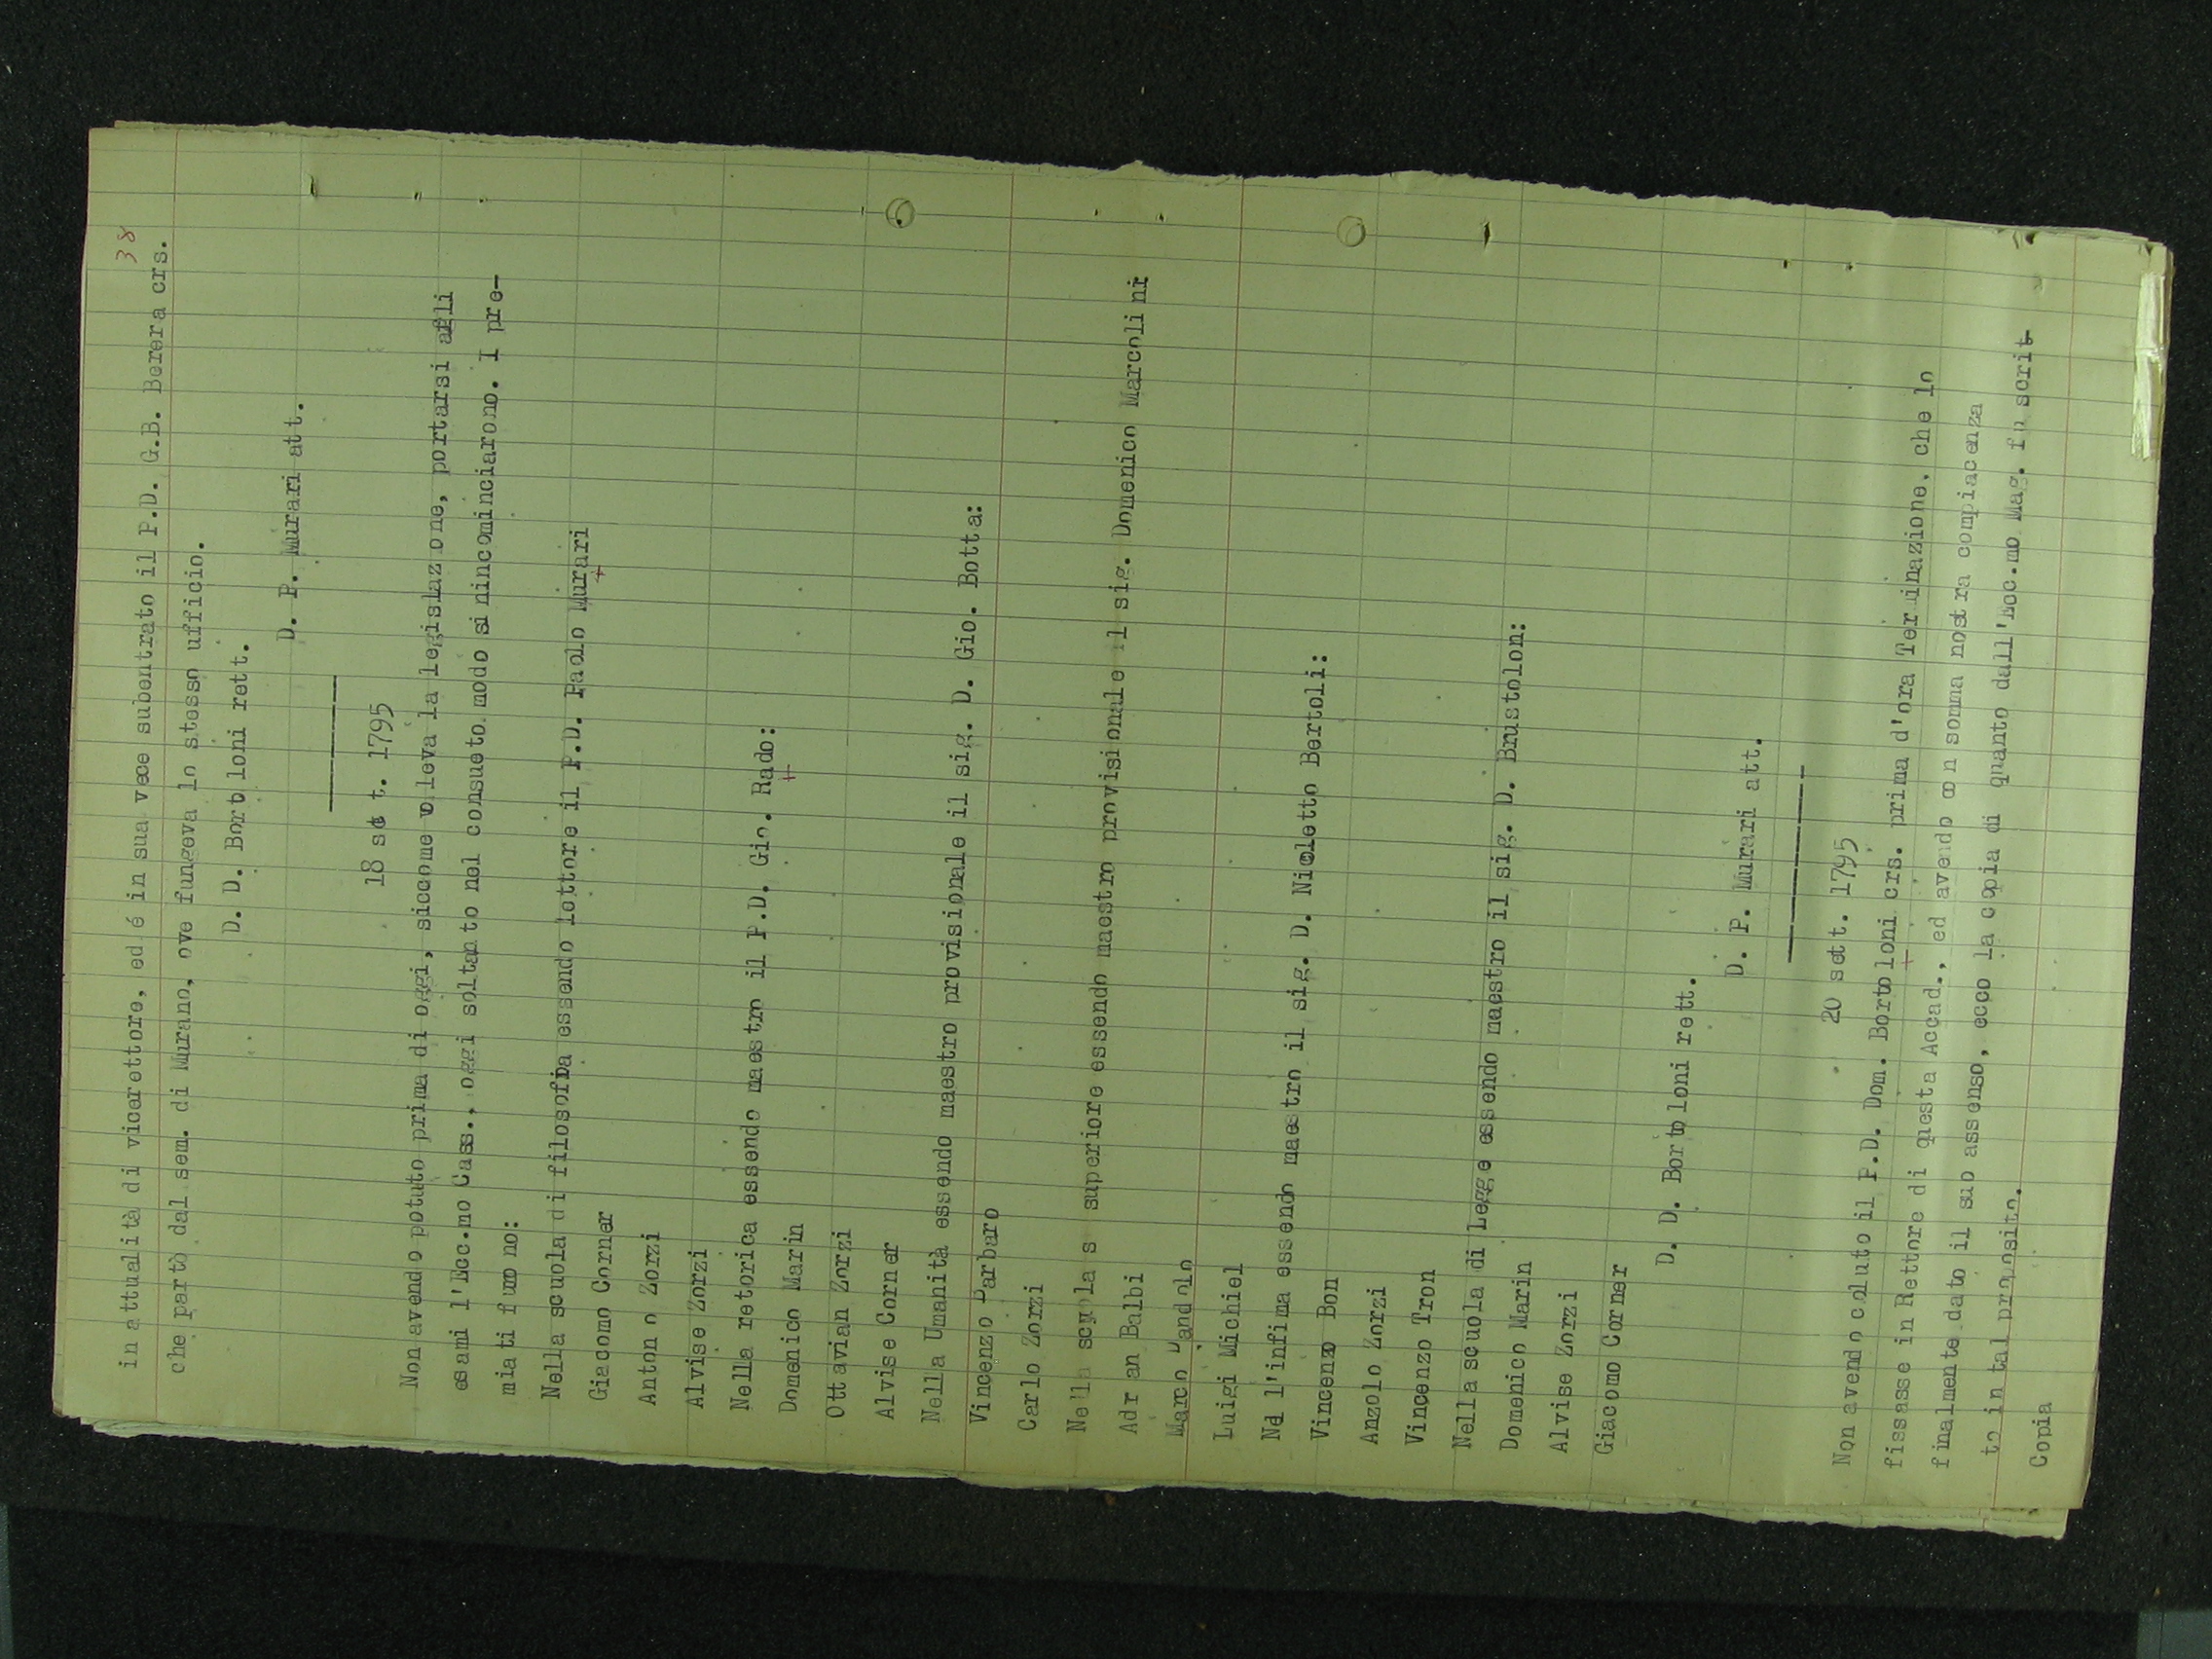 38
in attualità di vicerettore, ed é in sua vece subentrato il P.D. G.B. Borera crs.
che partò dal sem. di Murano, ove fungeva lo stesso ufficio.
D. D. Bortoloni rett.
D. P. Murari att.
18 set. 1795
Non avendo potuto prima di oggi, siccome voleva la legislazione, portarsi agli
esami l'Ecc.mo Cass., oggi soltanto nel consueto modo si nincominciarono. I pre-
miati furono:
Nella scuola di filosofia essendo lettore il P.D. Paolo Murari
Giacomo Corner
Antonio Zorzi
Alvise Zorzi
Nella retorica essendo maestro il P.D. Gio. Rado:
Domenico Marin
Ottavian Zorzi
Alvise Corner
Nella Umanità essendo maestro provisionale il sig. D. Gio. Botta:
Vincenzo Barbaro
Carlo Zorzi
Nella scuola s superiore essendo maestro provisionale il sig. Domenico Marcolini:
Adrian Balbi
Marco Dandolo
Luigi Michiel
Nel l'infima essendo maestro il sig. D. Nicoletto Bertoli:
Vincenzo Bon
Anzolo Zorzi
Vincenzo Tron
Nella scuola di Legge essendo maestro il sig. D. Brustolon:
Domenico Marin
Alvise Zorzi
Giacomo Corner
D. D. Bortoloni rett.
D. P. Murari att.
20 sett. 1795
Non avendo coluto il P.D. Dom. Bortoloni crs. prima d'ora Terminazione, che lo
fissasse in Rettore di questa Accad., ed avendo con somma nostra compiacenza
finalmente dato il suo assenso, ecco la copia di quanto dall'Ecc.mo Mag. fu scrit-
to in tal proposito.
Copia